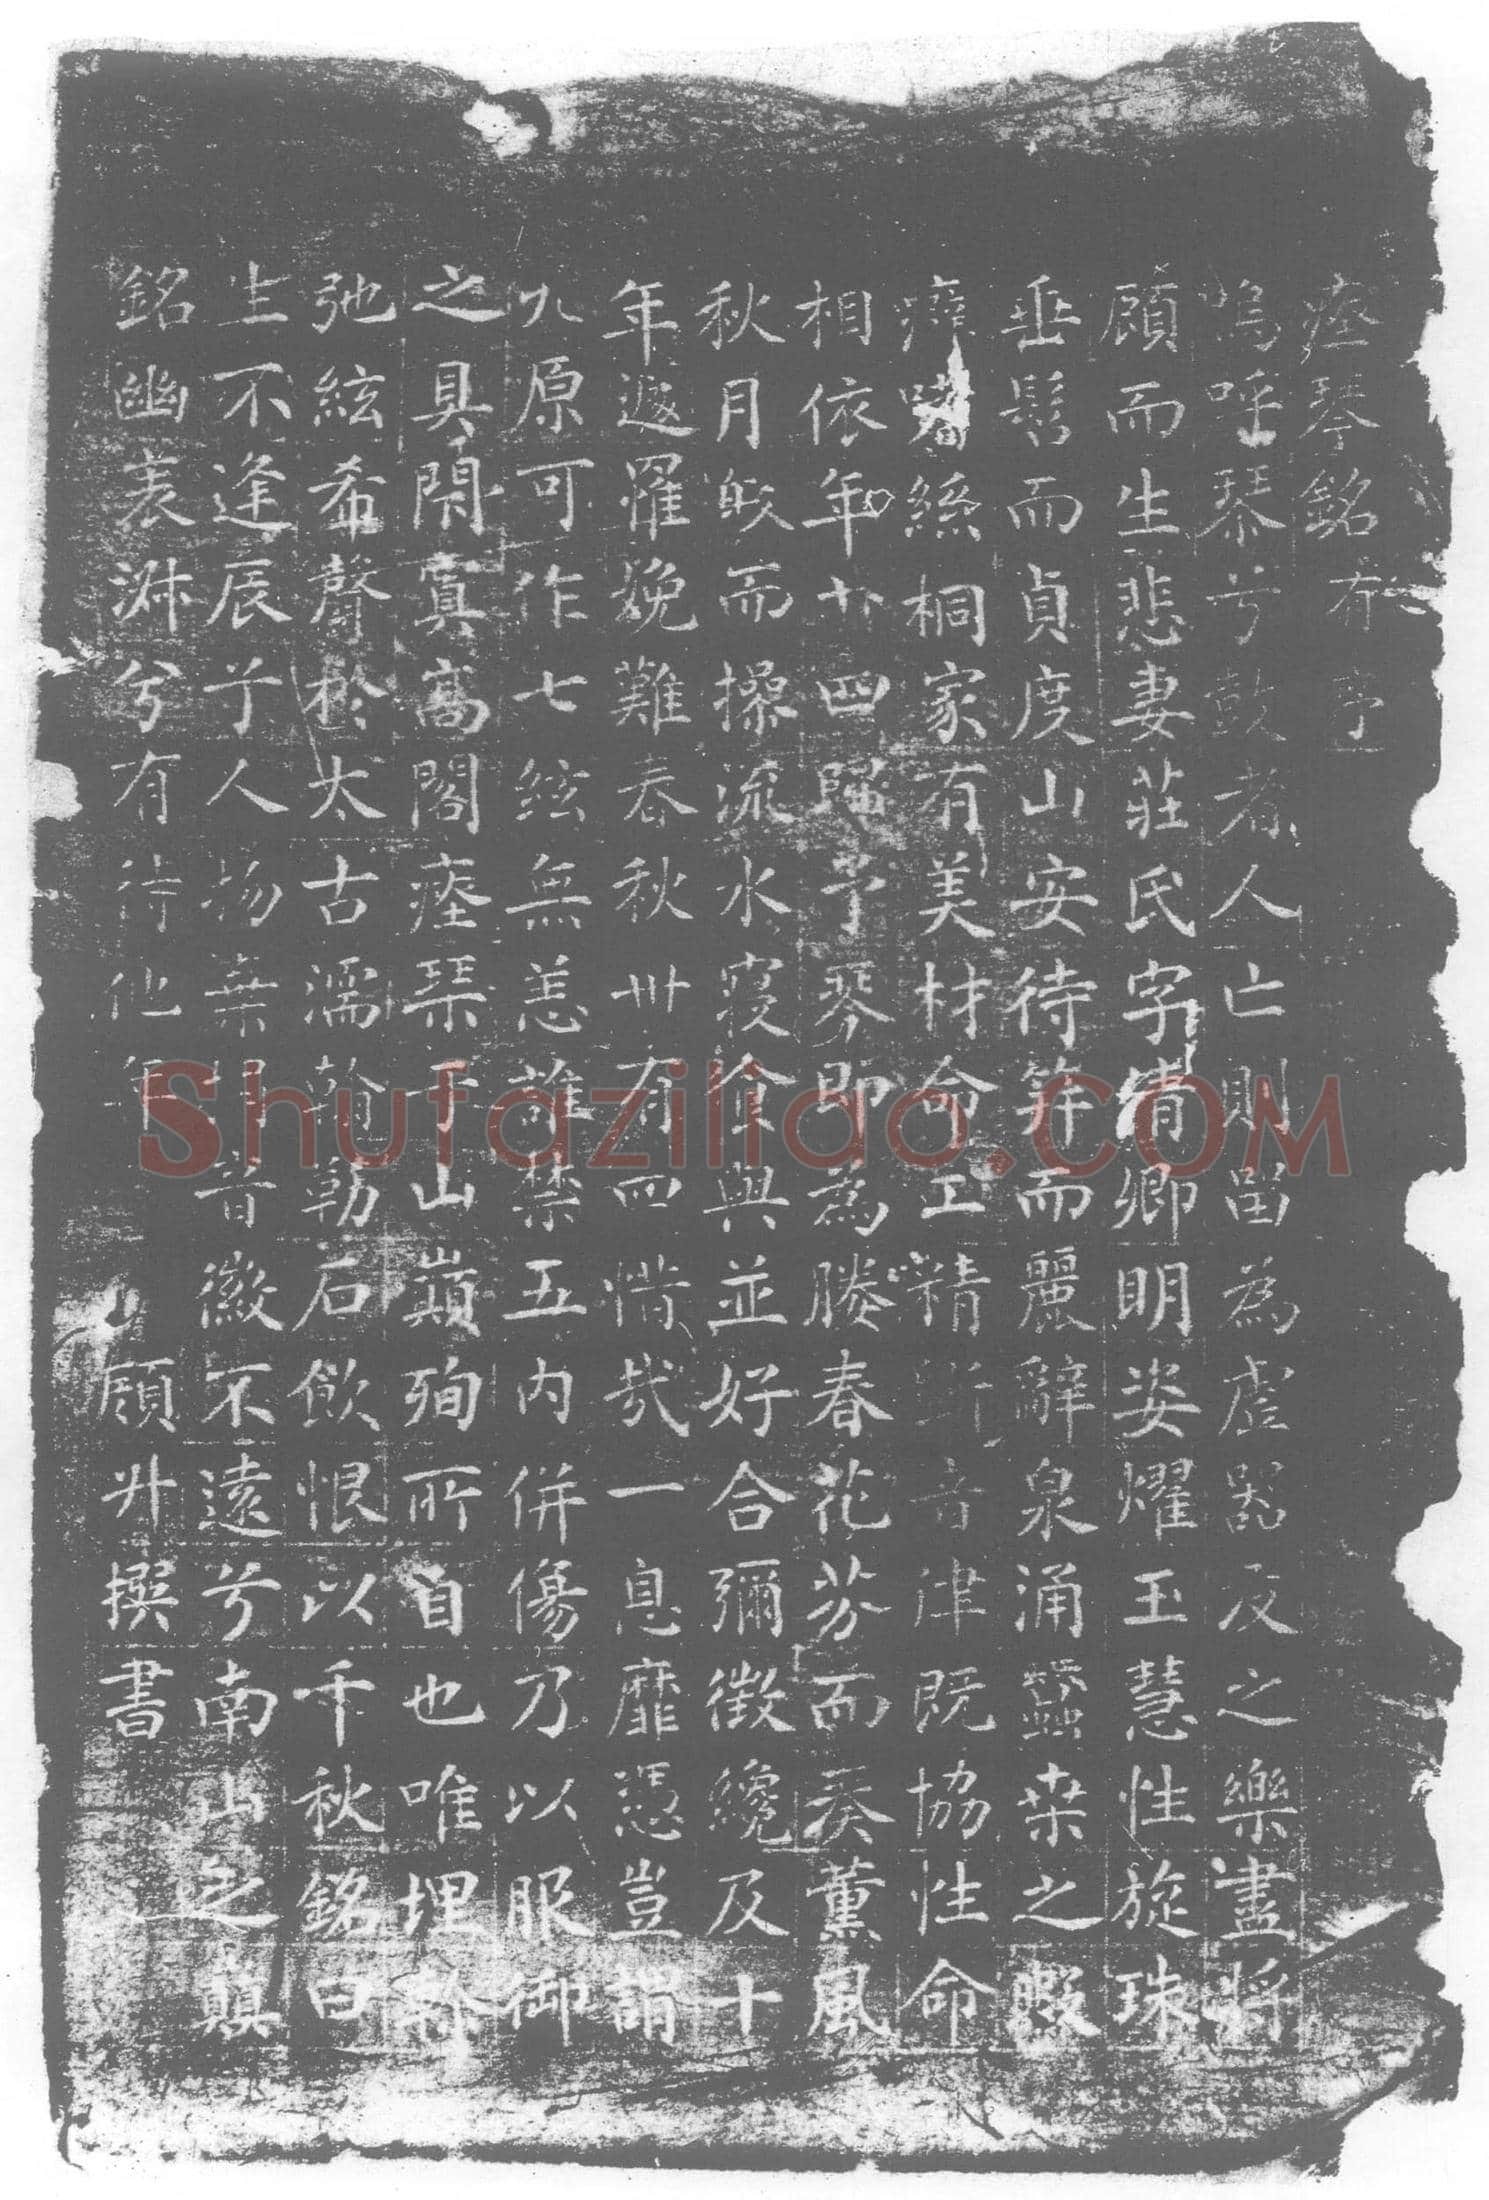 瘞琴銘有序
嗚呼琴兮鼓者人亡則留為虛器及之樂盡將
顧而生悲妻莊氏字肖卿明姿耀玉慧性旋珠
垂髫而貞度山安待笄而麗辭泉涌蠶桒之暇
癖嗜絲桐家有美材命工精斵音律既協性命
相依年廿四歸予琴即為媵春花芬而奏薰風
秋月皎而操流水寢食與並好合彌徵纔及十
年遽罹娩難春秋卅有四惜哉一息靡憑豈謂
九原可作七絃無恙誰禁五內併傷乃以服御
之具閑寘窩閣瘞琹于山巔殉所自也唯埋
弛絃希聲於太古濡翰勒石飲恨以千秋銘曰
生不逢辰兮人物棄捐音徽不遠兮南山之巔
銘幽表淑兮有待他年 顧升撰書
Shufaziliao.COM